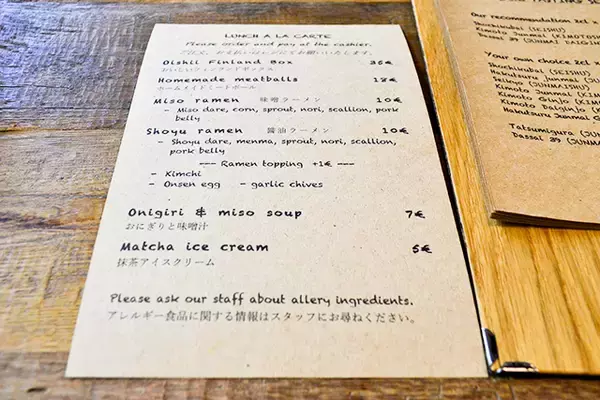 LUNCH A LA CARTE
Please order and pay at the cashier.
Oishii Finland Box 36€
おいしいフィンランドボックス
Homemade meatballs 18€
ホームメイドミートボール
Miso ramen 味噌ラーメン 10€
- Miso dare, corn, sprout, nori, scallion, pork
belly
Shoyu ramen 醤油ラーメン 10€
- Shoyu dare, menma, sprout, nori, scallion,
pork belly
--- Ramen topping +1€ ---
- Kimchi
- Onsen egg - garlic chives
Onigiri & miso soup 7€
おにぎりと味噌汁
Matcha ice cream 5€
抹茶アイスクリーム
Please ask our staff about allery ingredients.
アレルギー食品に関する情報はスタッフにお尋ねください。
Our recommendation 3cl x
Shochikubai (SEISHU)
Kimoto Junmai (KIMOTO
Dassai 39 (JUNMAI DAIGIN
Your own choice 2cl x
Shochikubai (SEISHU)
Hakutsuru Junmai (JUNM
Kimoto Junmai (KIMOT
Kimoto Ginjo (KIMOTO
Hakutsuru Junmai G
Tatsumigura (JUNM
Dassai 39 (JUNM